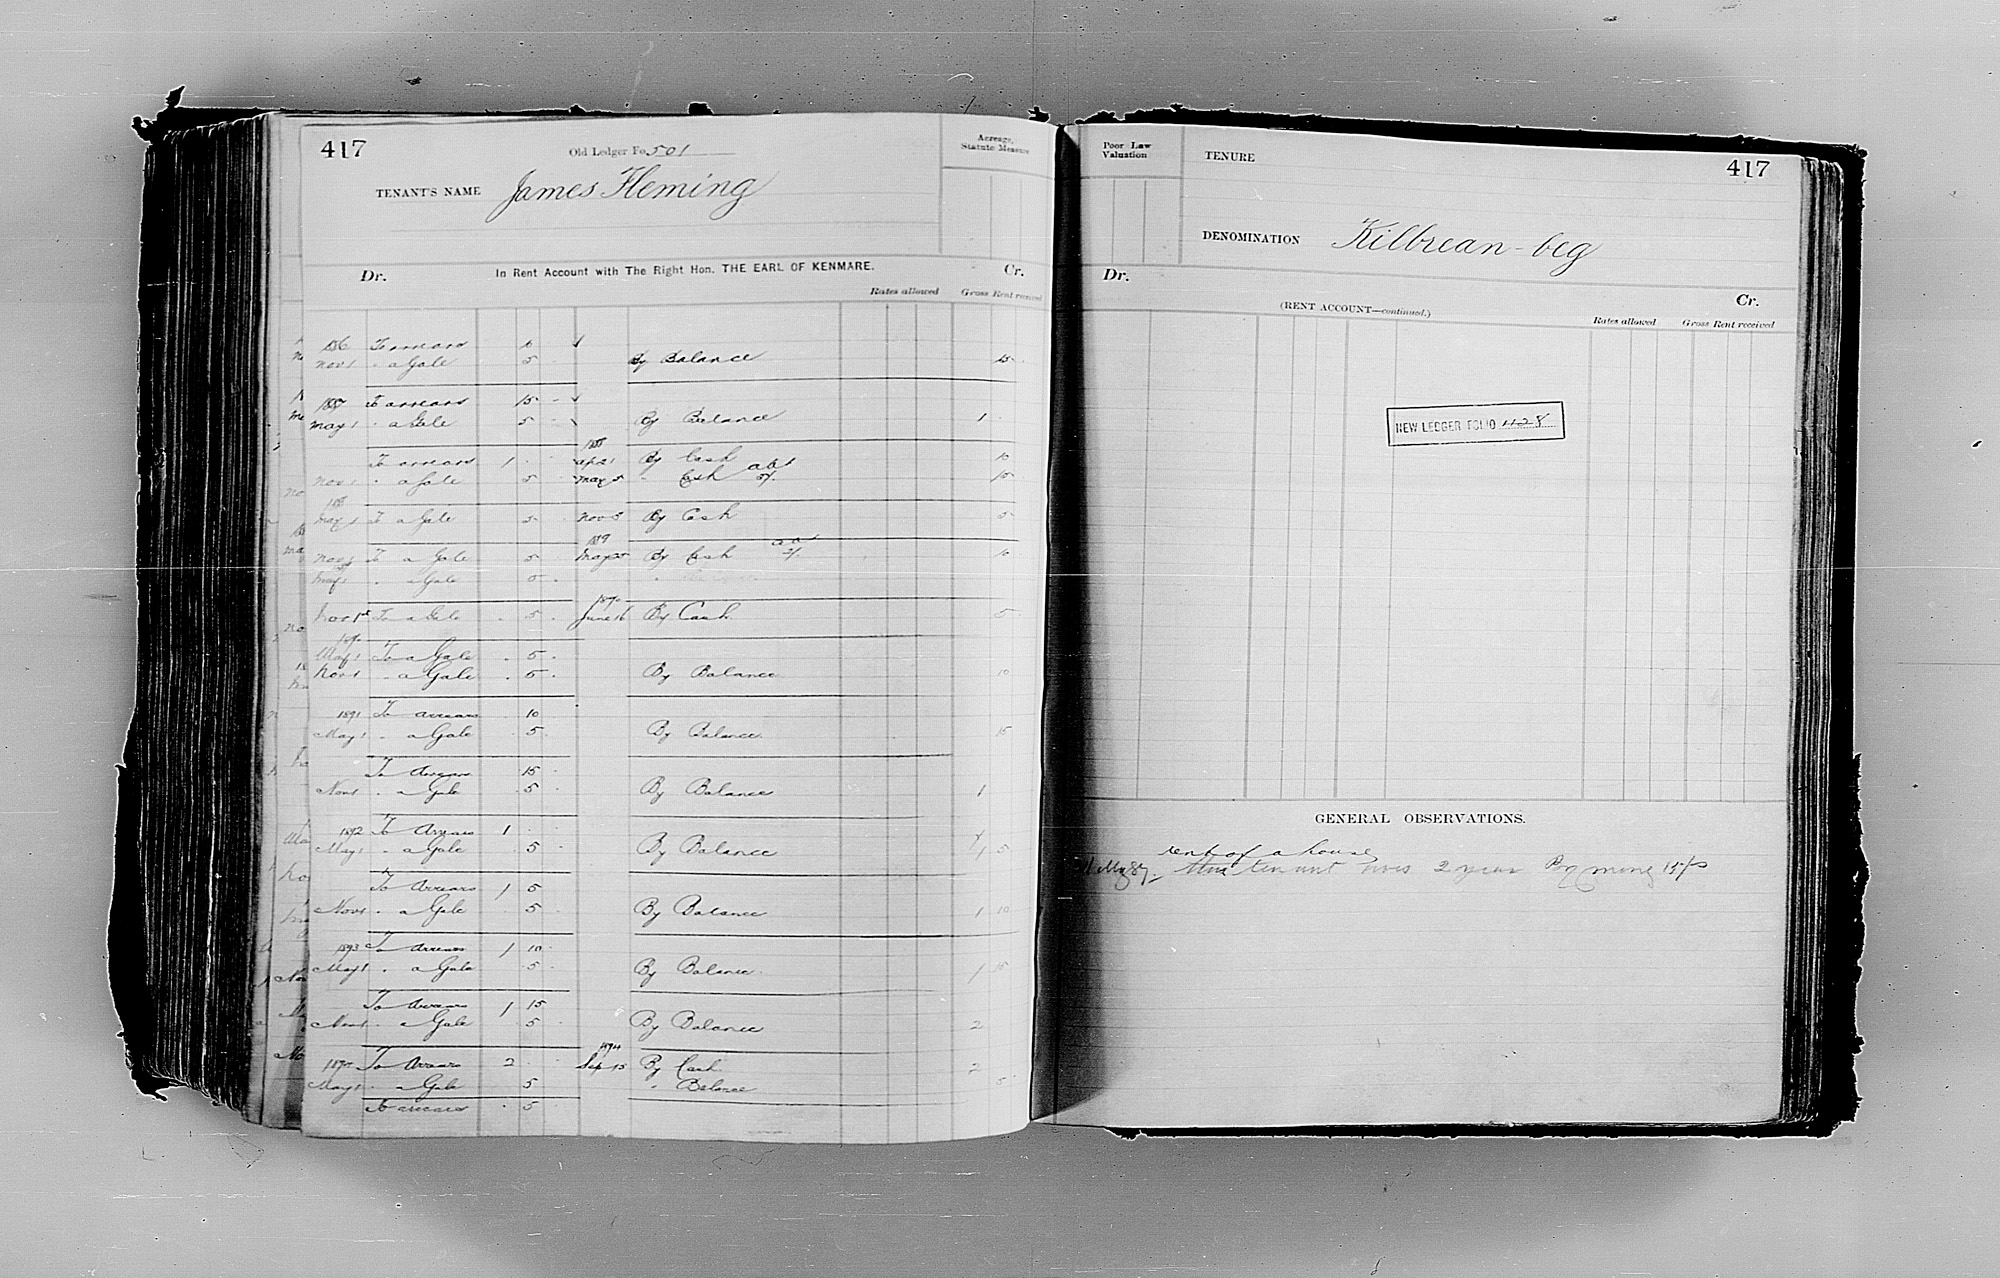 417
Old Ledger Fo. 501
Acreage, Statute Measure
TENANT'S NAME James Fleming
Dr. In Rent Account with The Right Hon. THE EARL OF KENMARE. Cr.
Rates allowed Gross Rent received
1886 To arrears
Nov 1 " a Gale 5 By Balance 15
1887 To arrears 15
May 1 " a Gale 5 By Balance 1
1888
To arrears 1 By Cash 10
Nov 1 " a Gale 5 May 5 " Cash
1888
May 1 To a Gale 5 Nov 5 By Cash 5
1889
Nov 1 To a Gale 5 By Cash 10
May 1 " a Gale 5
1890
Nov 1st To a Gale 5 June 16 By Cash 5
1890
May 1 To a Gale 5
Nov 1 " a Gale 5 By Balance 10
1891 To arrears 10
May 1 " a Gale 5 By Balance 15
To Arrears 15
Nov 1 " a Gale 5 By Balance 1
1892 To Arrears 1
May 1 " a Gale 5 By Balance 1 5
To Arrears 1 5
Nov 1 " a Gale 5 By Balance 1 10
1893 To Arrears 1 10
May 1 " a Gale 5 By Balance 1 15
To Arrears 1 15
Nov 1 " a Gale 5 By Balance 2
1894
To Arrears 2 Sep 15 By Cash 2
May 1 " a Gale 5 " Balance 5
To arrears 5
Poor Law Valuation
TENURE
417
DENOMINATION Kilbrean-beg
Dr. Cr.
(RENT ACCOUNT—continued.)
Rates allowed Gross Rent received
NEW LEDGER FOLIO 1128
GENERAL OBSERVATIONS.
rent of a house
this tenant owes 2 years